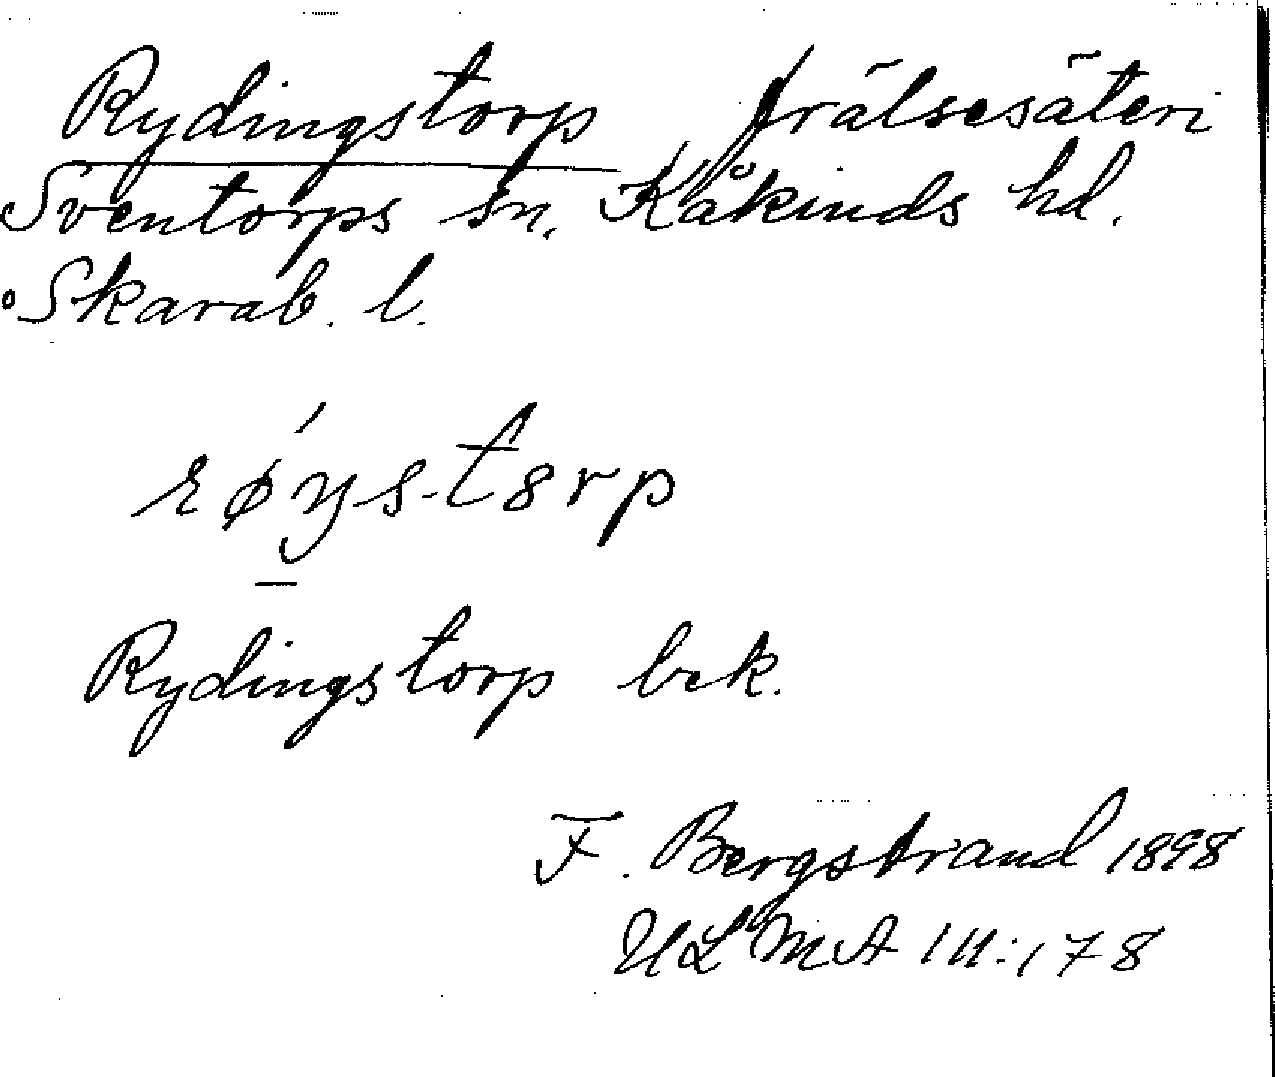 Rydingstorp frälsesäteri
Sventorps sn. Kåkinds hd.
Skarab. l.
røys-torp
Rydingstorp bek.
F. Bergstrand 1898
ULMA 111:178